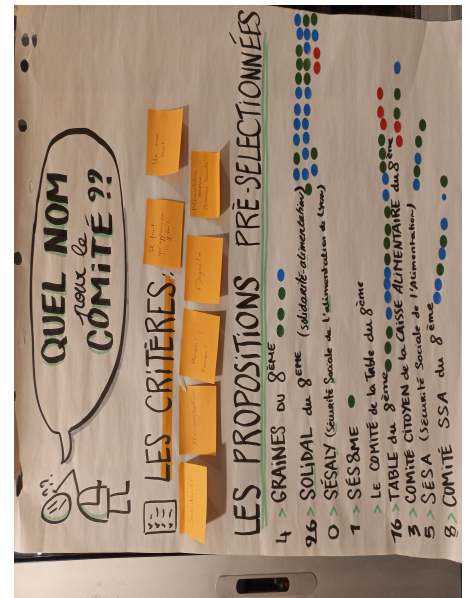 QUEL NOM
pour le
COMITÉ ??
LES CRITÈRES:
LES PROPOSITIONS PRÉ-SELECTIONNÉES
4 > GRAINES DU 8ÈME
26 > SOLIDAL du 8ÈME (solidarité-alimentation)
0 > SÉSALY (Sécurité Sociale de l'alimentation de Lyon)
1 > SÉS8ME
> Le COMITÉ de la Table du 8ème
16 > TABLE du 8ème
3 > COMITÉ CITOYEN de la CAISSE ALIMENTAIRE du 8ème
5 > SÉSA (Sécurité Sociale de l'Alimentation)
8 > COMITÉ SSA du 8ème